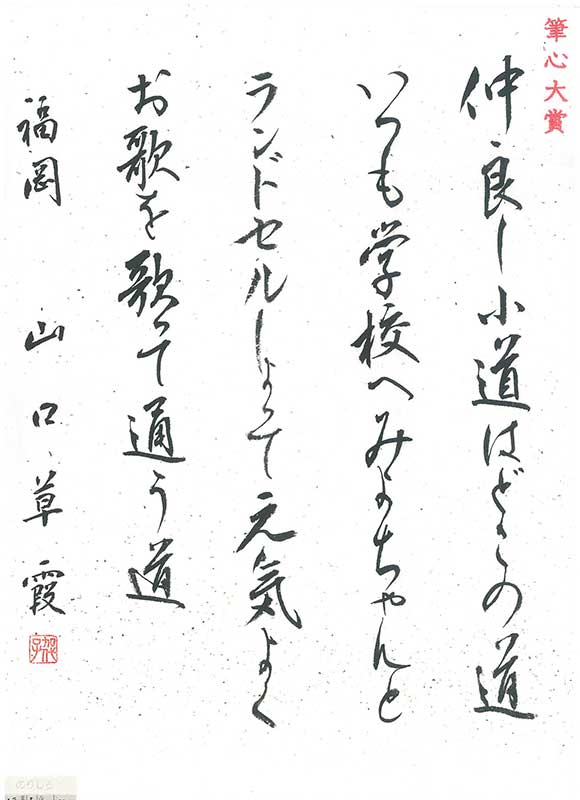 筆心大賞
仲良し小道はどこの道
いつも学校へみよちゃんと
ランドセルしょって元気よく
お歌を歌って通う道
福岡 山口草霞
のりしろ